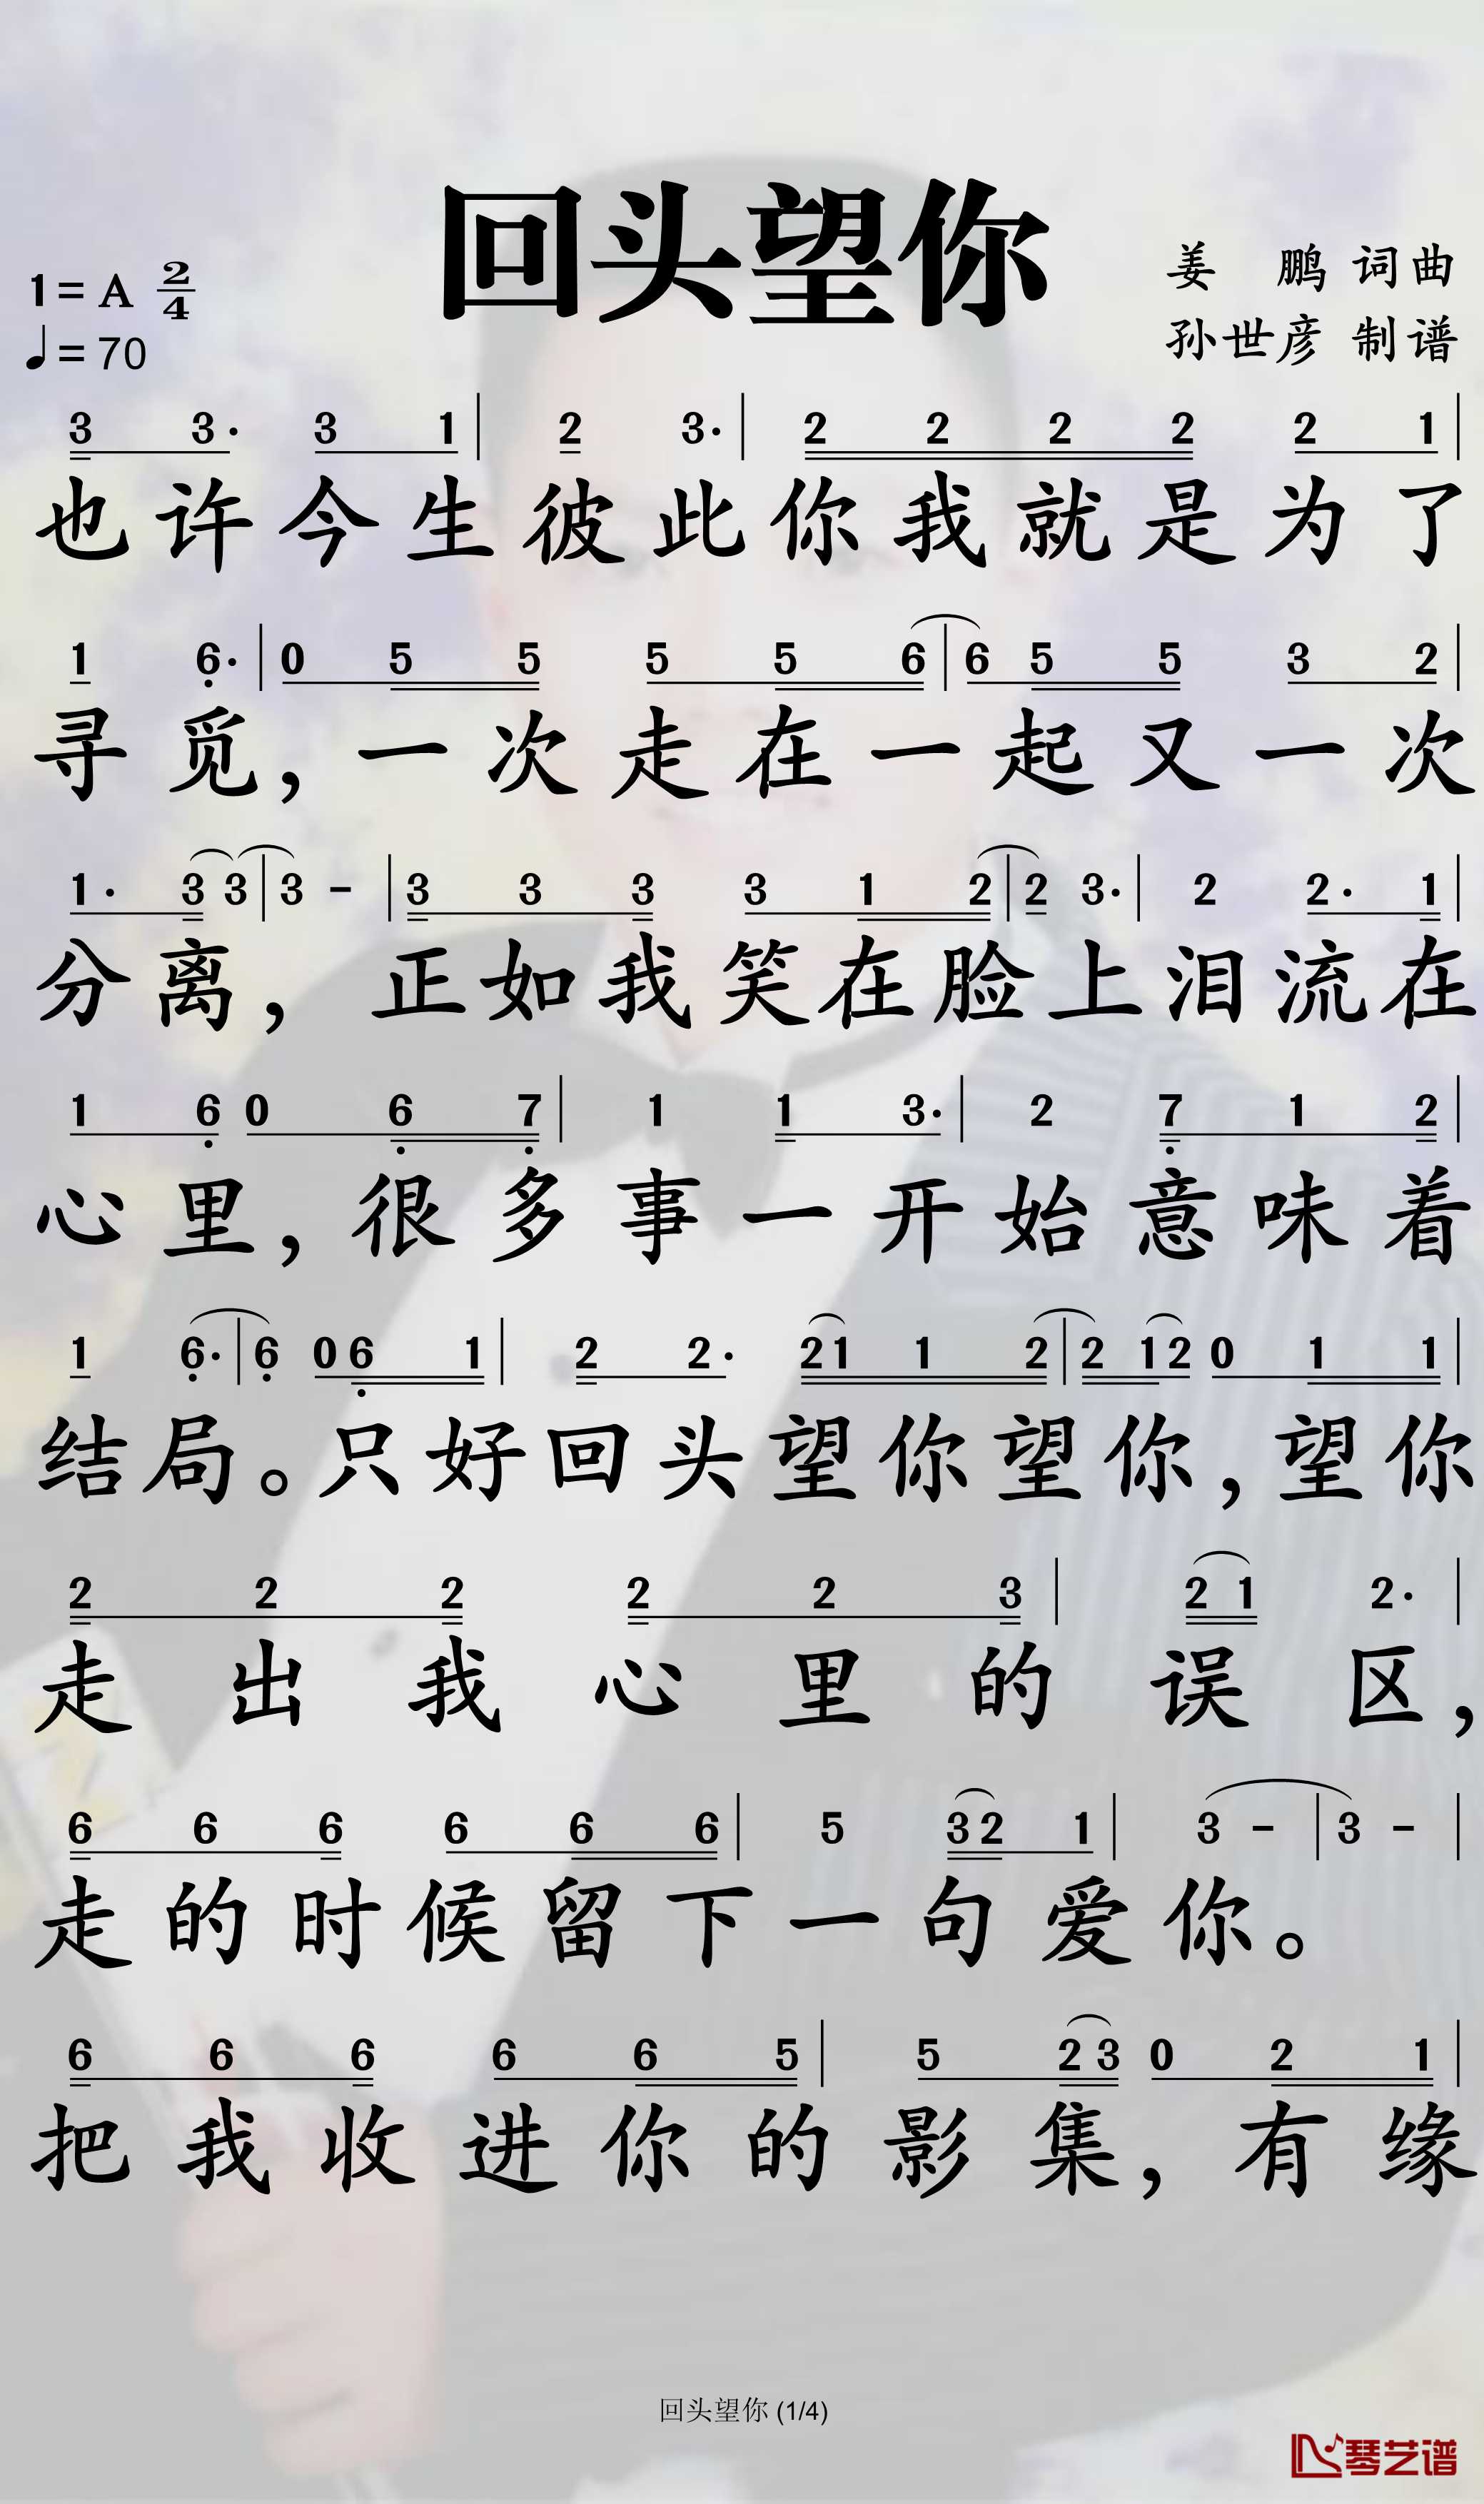 回头望你
1=A 2/4
♩=70
姜 鹏 词曲
孙世彦 制谱
3 3· 3 1 | 2 3· | 2 2 2 2 2 1 |
也许今生彼此你我就是为了
1 6· | 0 5 5 5 5 6 | 6 5 5 3 2 |
寻觅，一次走在一起又一次
1· 3 3 | 3 - | 3 3 3 3 1 2 | 2 3· | 2 2· 1 |
分离，正如我笑在脸上泪流在
1 6 0 6 7 | 1 1 3· | 2 7 1 2 |
心里，很多事一开始意味着
1 6· | 6 0 6 1 | 2 2· 2 1 1 2 | 2 1 2 0 1 1 |
结局。只好回头望你望你，望你
2 2 2 2 2 3 | 2 1 2· |
走出我心里的误区，
6 6 6 6 6 6 | 5 3 2 1 | 3 - | 3 - |
走的时候留下一句爱你。
6 6 6 6 6 5 | 5 2 3 0 2 1 |
把我收进你的影集，有缘
回头望你 (1/4)
琴艺谱